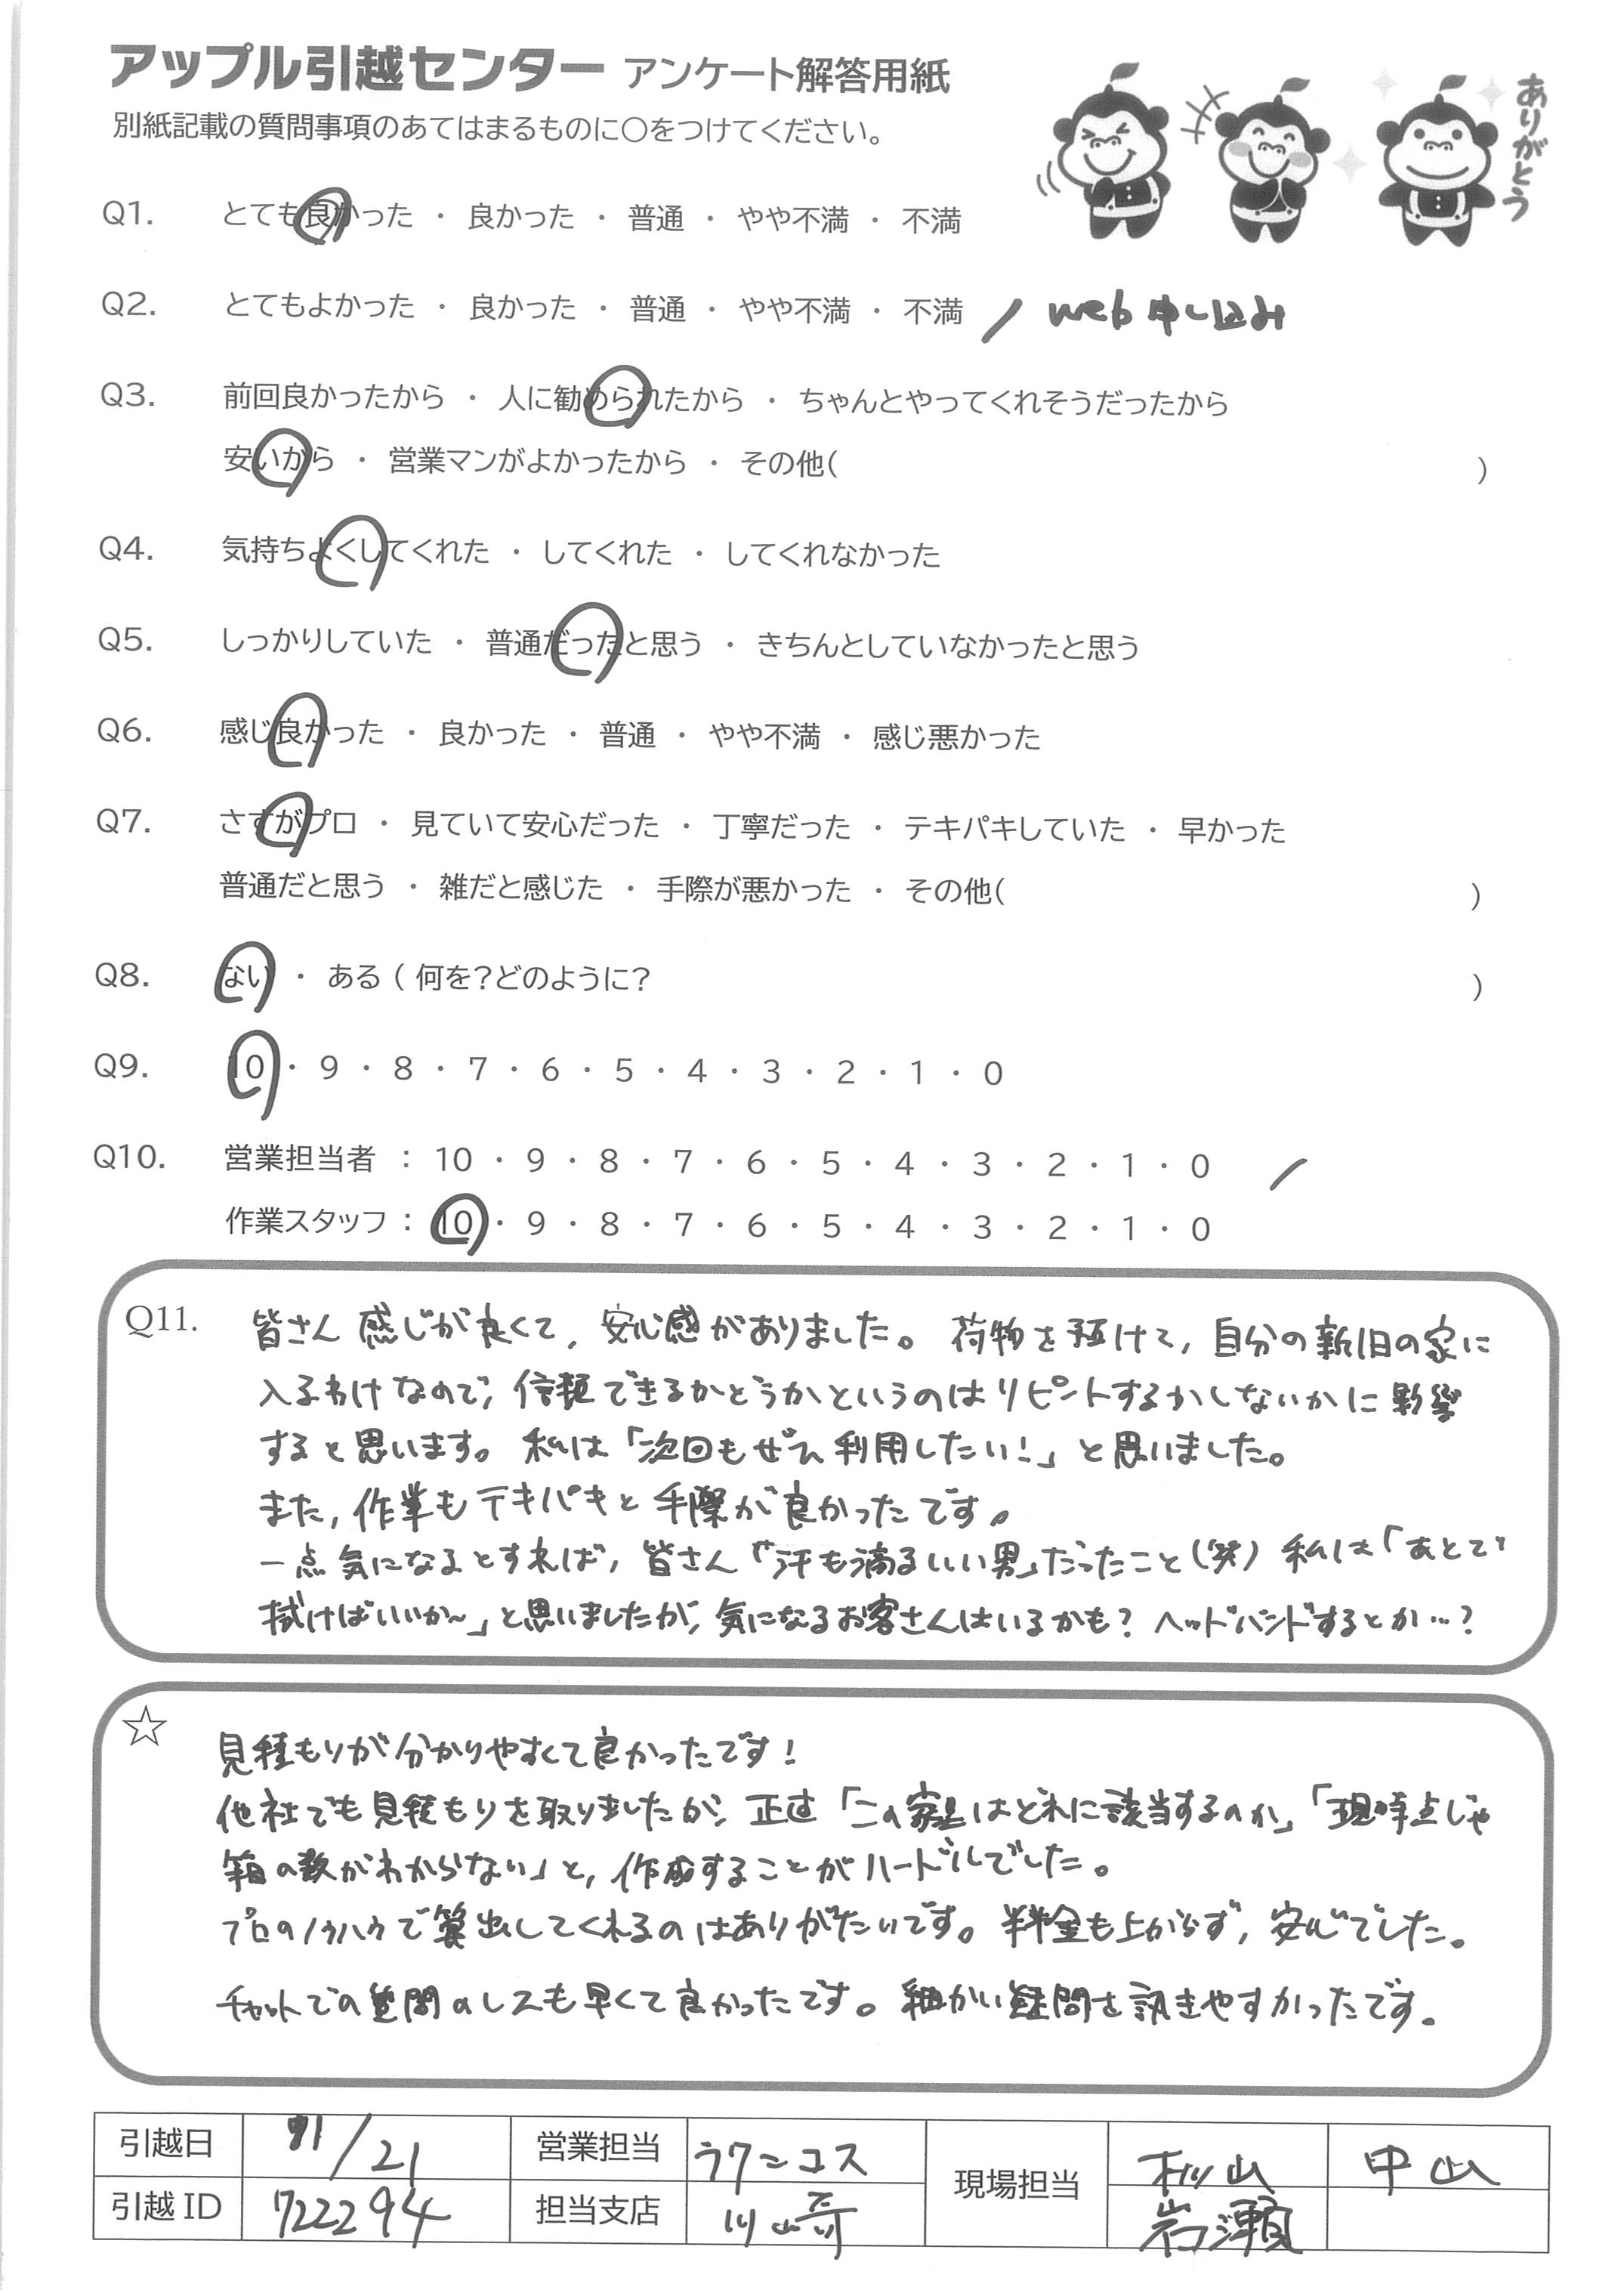 アップル引越センター アンケート解答用紙
別紙記載の質問事項のあてはまるものに○をつけてください。
ありがとう
Q1. とても良かった ・ 良かった ・ 普通 ・ やや不満 ・ 不満
Q2. とてもよかった ・ 良かった ・ 普通 ・ やや不満 ・ 不満 / web申し込み
Q3. 前回良かったから ・ 人に勧められたから ・ ちゃんとやってくれそうだったから
安いから ・ 営業マンがよかったから ・ その他( )
Q4. 気持ちよくしてくれた ・ してくれた ・ してくれなかった
Q5. しっかりしていた ・ 普通だったと思う ・ きちんとしていなかったと思う
Q6. 感じ良かった ・ 良かった ・ 普通 ・ やや不満 ・ 感じ悪かった
Q7. さすがプロ ・ 見ていて安心だった ・ 丁寧だった ・ テキパキしていた ・ 早かった
普通だと思う ・ 雑だと感じた ・ 手際が悪かった ・ その他( )
Q8. ない ・ ある ( 何を?どのように? )
Q9. 10 ・ 9 ・ 8 ・ 7 ・ 6 ・ 5 ・ 4 ・ 3 ・ 2 ・ 1 ・ 0
Q10. 営業担当者 : 10 ・ 9 ・ 8 ・ 7 ・ 6 ・ 5 ・ 4 ・ 3 ・ 2 ・ 1 ・ 0 /
作業スタッフ : 10 ・ 9 ・ 8 ・ 7 ・ 6 ・ 5 ・ 4 ・ 3 ・ 2 ・ 1 ・ 0
Q11. 皆さん感じが良くて、安心感がありました。荷物を預けて、自分の新旧の家に
入るわけなので、信頼できるかどうかというのはリピートするかしないかに影響
すると思います。私は「次回もぜひ利用したい!」と思いました。
また、作業もテキパキと手際が良かったです。
一点気になるとすれば、皆さん「汗も滴るいい男」だったこと(笑) 私は「あとで
拭けばいいか〜」と思いましたが、気になるお客さんはいるかも? ヘッドバンドするとか…?
☆ 見積もりが分かりやすくて良かったです!
他社でも見積もりを取りましたが、正直「この家具はどれに該当するのか」「現時点じゃ
箱の数がわからない」と、作成することがハードルでした。
プロのノウハウで算出してくれるのはありがたいです。料金も上がらず、安心でした。
チャットでの質問のレスも早くて良かったです。細かい疑問を訊きやすかったです。
引越日 /21 営業担当 ラクニコス 現場担当 杉山 中山
引越ID 722294 担当支店 川崎 岩瀬